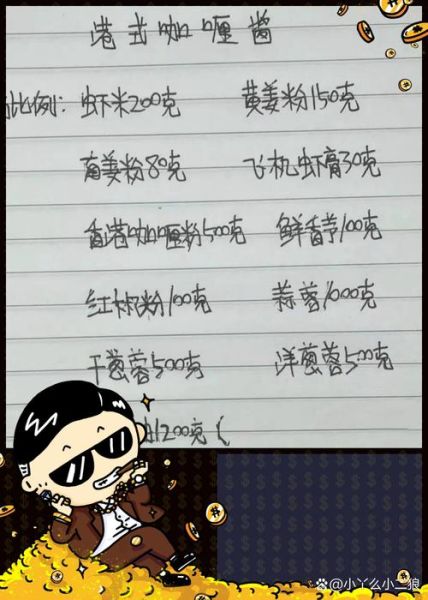 港式咖喱酱
比例：虾米200克 黄姜粉150克
南姜粉80克 飞机虾膏30克
香港咖喱粉500克 鲜香茅100克
红椒粉100克 蒜蓉1000克
干葱蓉500克 洋葱蓉500克
油1200克（
@小丫么小二狼